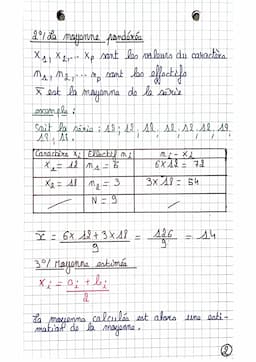 2°/ La moyenne pondérée
x₁, x₂, ... xp sont les valeurs du caractère
n₁, n₂, ... np sont les effectifs
x̄ est la moyenne de la série
exemple :
Soit la série : 12 ; 12, 12, 12, 12, 12, 18
18, 18.
Caractère xᵢ | Effectif nᵢ | nᵢ - xᵢ
x₁ = 12 | n₁ = 6 | 6 x 12 = 72
x₂ = 18 | n₂ = 3 | 3 x 18 = 54
N = 9
x̄ = 6 x 12 + 3 x 18 / 9 = 126 / 9 = 14
3°/ Moyenne estimée
xᵢ = aᵢ + bᵢ / 2
La moyenne calculée est alors une esti-
mation de la moyenne.
2